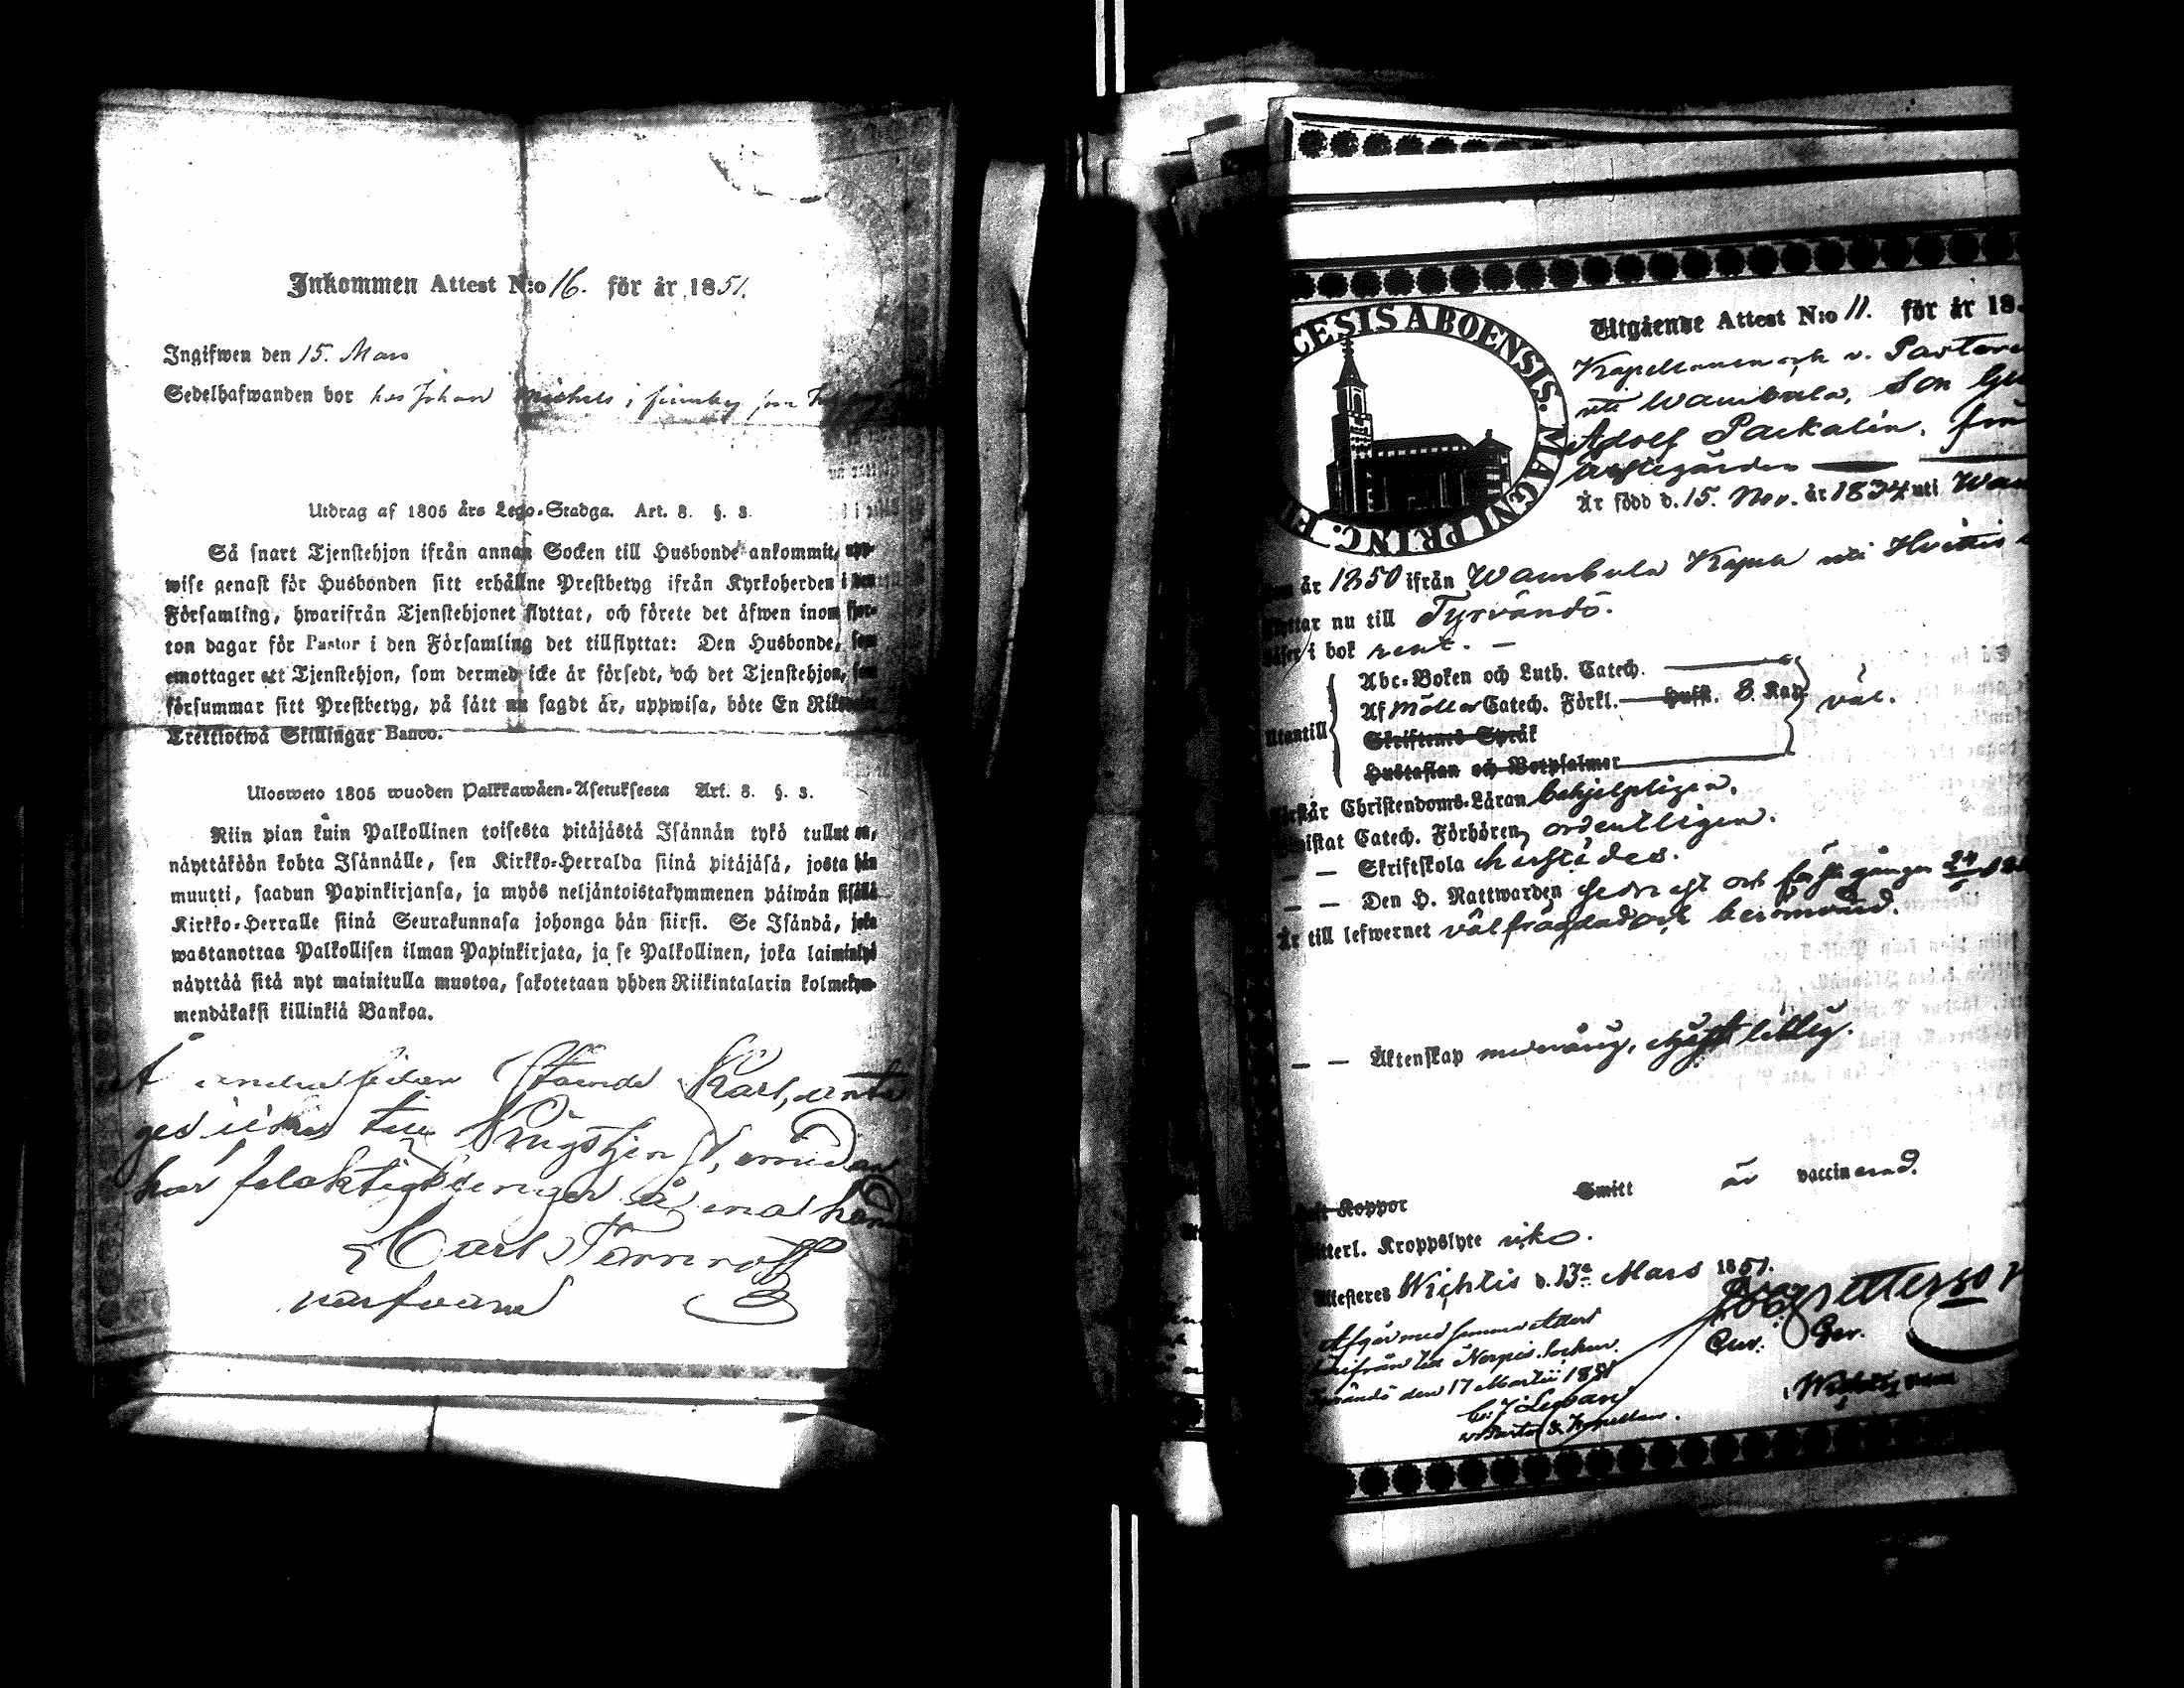 Inkommen Attest N:o 16. för år 1851.
Ingifwen den 15. Mars
Sedelhafwanden bor hos Johan Michels i
Utdrag af 1805 års Lego-Stadga. Art. 8. §. 3.
Så snart Tjenstehjon ifrån annan Socken till Husbonde ankommit, upp-
wise genast för Husbonden sitt erhållne Prestbetyg ifrån Kyrkoherden i den
Församling, hwarifrån Tjenstehjonet flyttat, och förete det äfwen inom fjor-
ton dagar för Pastor i den Församling det tillflyttat: Den Husbonde, som
emottager ett Tjenstehjon, som dermed icke är försedt, och det Tjenstehjon, som
försummar sitt Prestbetyg, på sätt nu sagdt är, uppwisa, böte En Riksdaler
Trettiotwå Skillingar Banco.
Ulosweto 1805 wuoden Palkkawäen-Asetuksesta Art. 8. §. 3.
Niin pian kuin Palkollinen toisesta pitäjästä Isännän tykö tullut on,
näyttäköön kohta Isännälle, sen Kirkko-Herralda siinä pitäjäsä, josta hän
muutti, saadun Papinkirjansa, ja myös neljäntoistakymmenen päiwän sisällä
Kirkko-Herralle siinä Seurakunnasa johonga hän siirsi. Se Isändä, joka
wastanottaa Palkollisen ilman Papinkirjata, ja se Palkollinen, joka laiminlyö
näyttää sitä nyt mainitulla muotoa, sakotetaan yhden Riikintalarin kolmekym-
mendäkaksi killinkiä Bankoa.
Å andra sidan Stående Karl, anta
ges icke till Krigstjenst, emedan
har felaktigt finger å ena hand
Carl
CESIS ABOENSIS. MAGNI PRINC. FI
Utgående Attest N:o 11. för år 18
Kapellanen och v. Pastoren
uti Wambula, Son
Adolf Packalén, från
Är född d. 15. Nov. år 1834 uti Wam
år 1850 ifrån Wambula Kapell uti Hvittis
flyttar nu till Tyrvändö.
Läser i bok rent. —
Abc-Boken och Luth. Catech.
Af Möllers Catech. Förkl. — Hufst. 8. Kap. väl.
Utantill Skriftenes Språk
Hustaflan och Botpsalmer
Förstår Christendoms-Läran behjelpligen.
Bewistat Catech. Förhören ordentligen.
— — Skriftskola härstädes.
— — Den H. Nattwarden sednast och första gången 24
Är till lefwernet välfrägdad och berömvärd.
— — Äktenskap
Haft Koppor Smitt är vaccinerad.
Witterl. Kroppslyte icke.
Attesteras Wichtis d. 13de Mars 1851.
Petterson
Afgår med samma attest
härifrån till Nerpis socken.
Tyrvändö den 17 Martii 1851
v. Pastor & Kapellan.